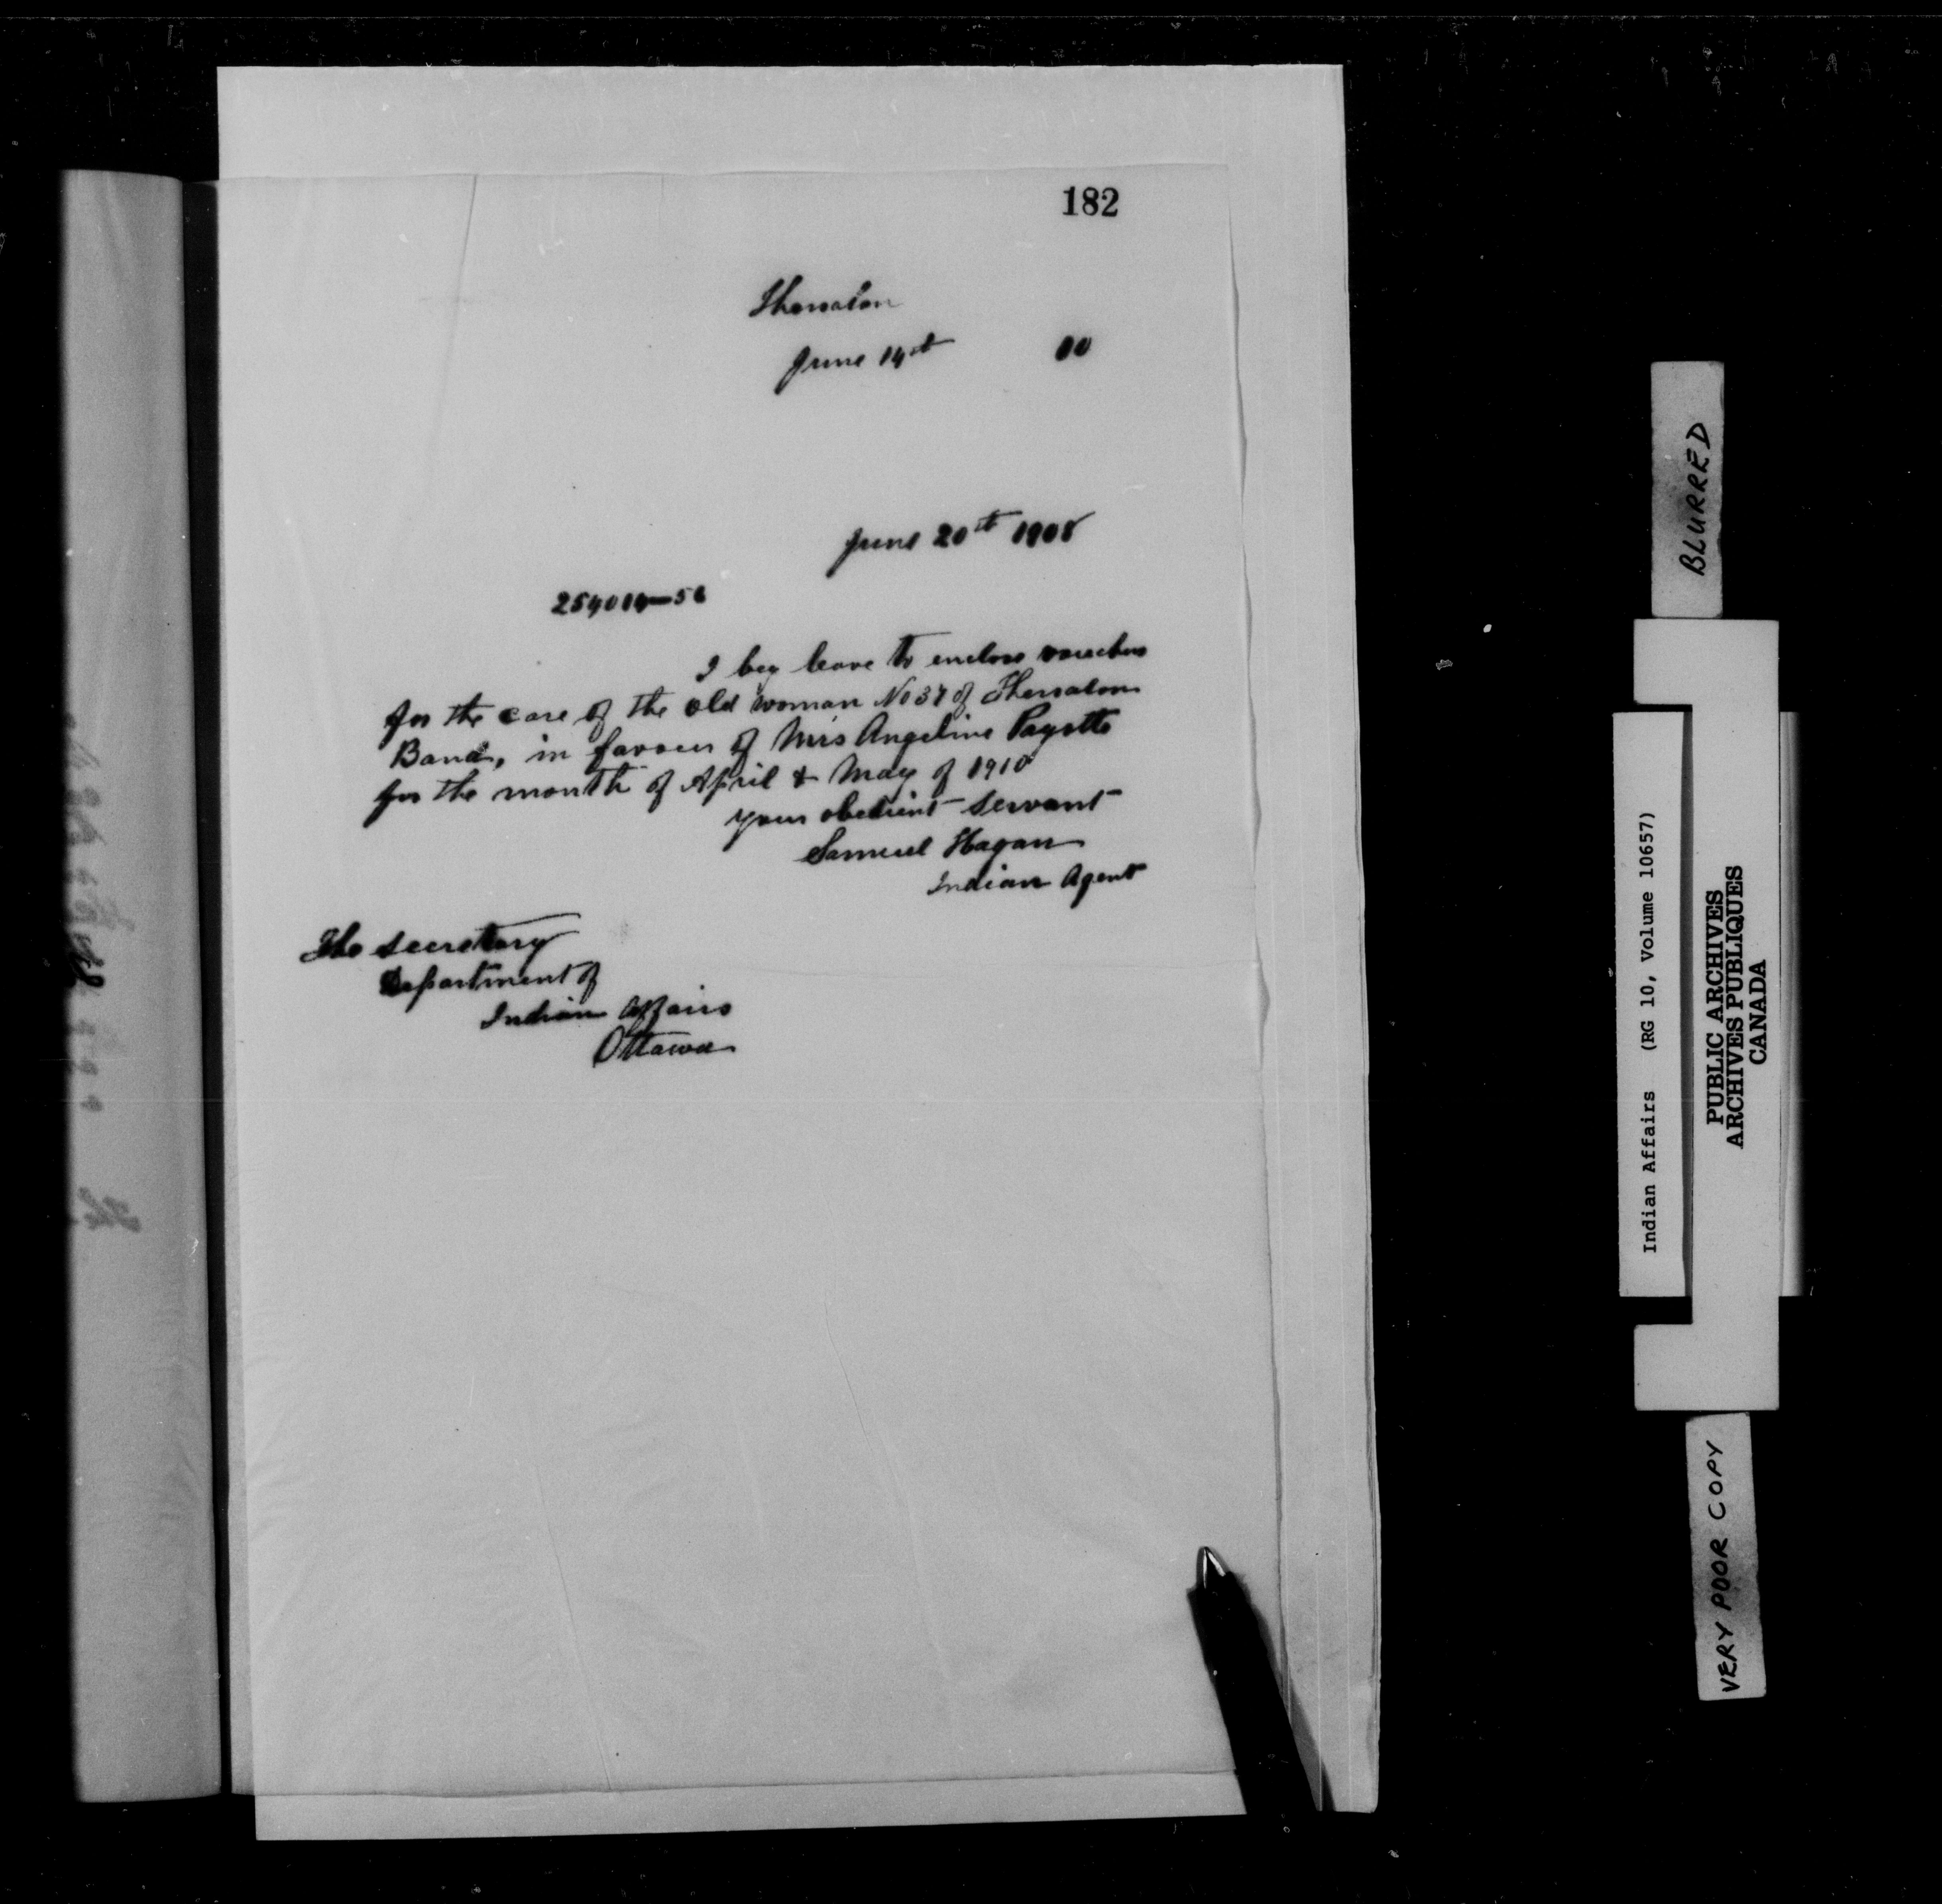 182
Thessalon
June 14th 10
June 20th 1908
254014-56
I beg leave to enclose vouchers
for the care of the old woman No 37 of Thessalon
Band, in favour of Mrs Angeline Payette
for the month of April & May of 1910
your obedient servant
Samuel Hagan
Indian Agent
The Secretary
Department of
Indian Affairs
Ottawa
BLURRED
Indian Affairs (RG 10, Volume 10657)
PUBLIC ARCHIVES
ARCHIVES PUBLIQUES
CANADA
VERY POOR COPY